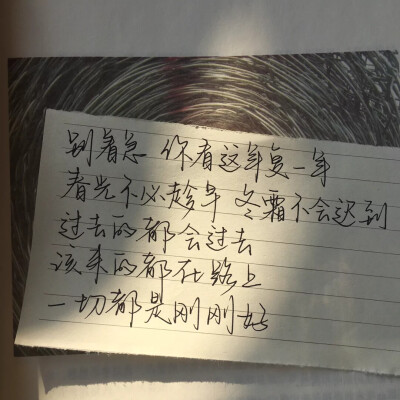 别着急 你看这年复一年
春光不必趁早 冬霜不会迟到
过去的都会过去
该来的都在路上
一切都是刚刚好